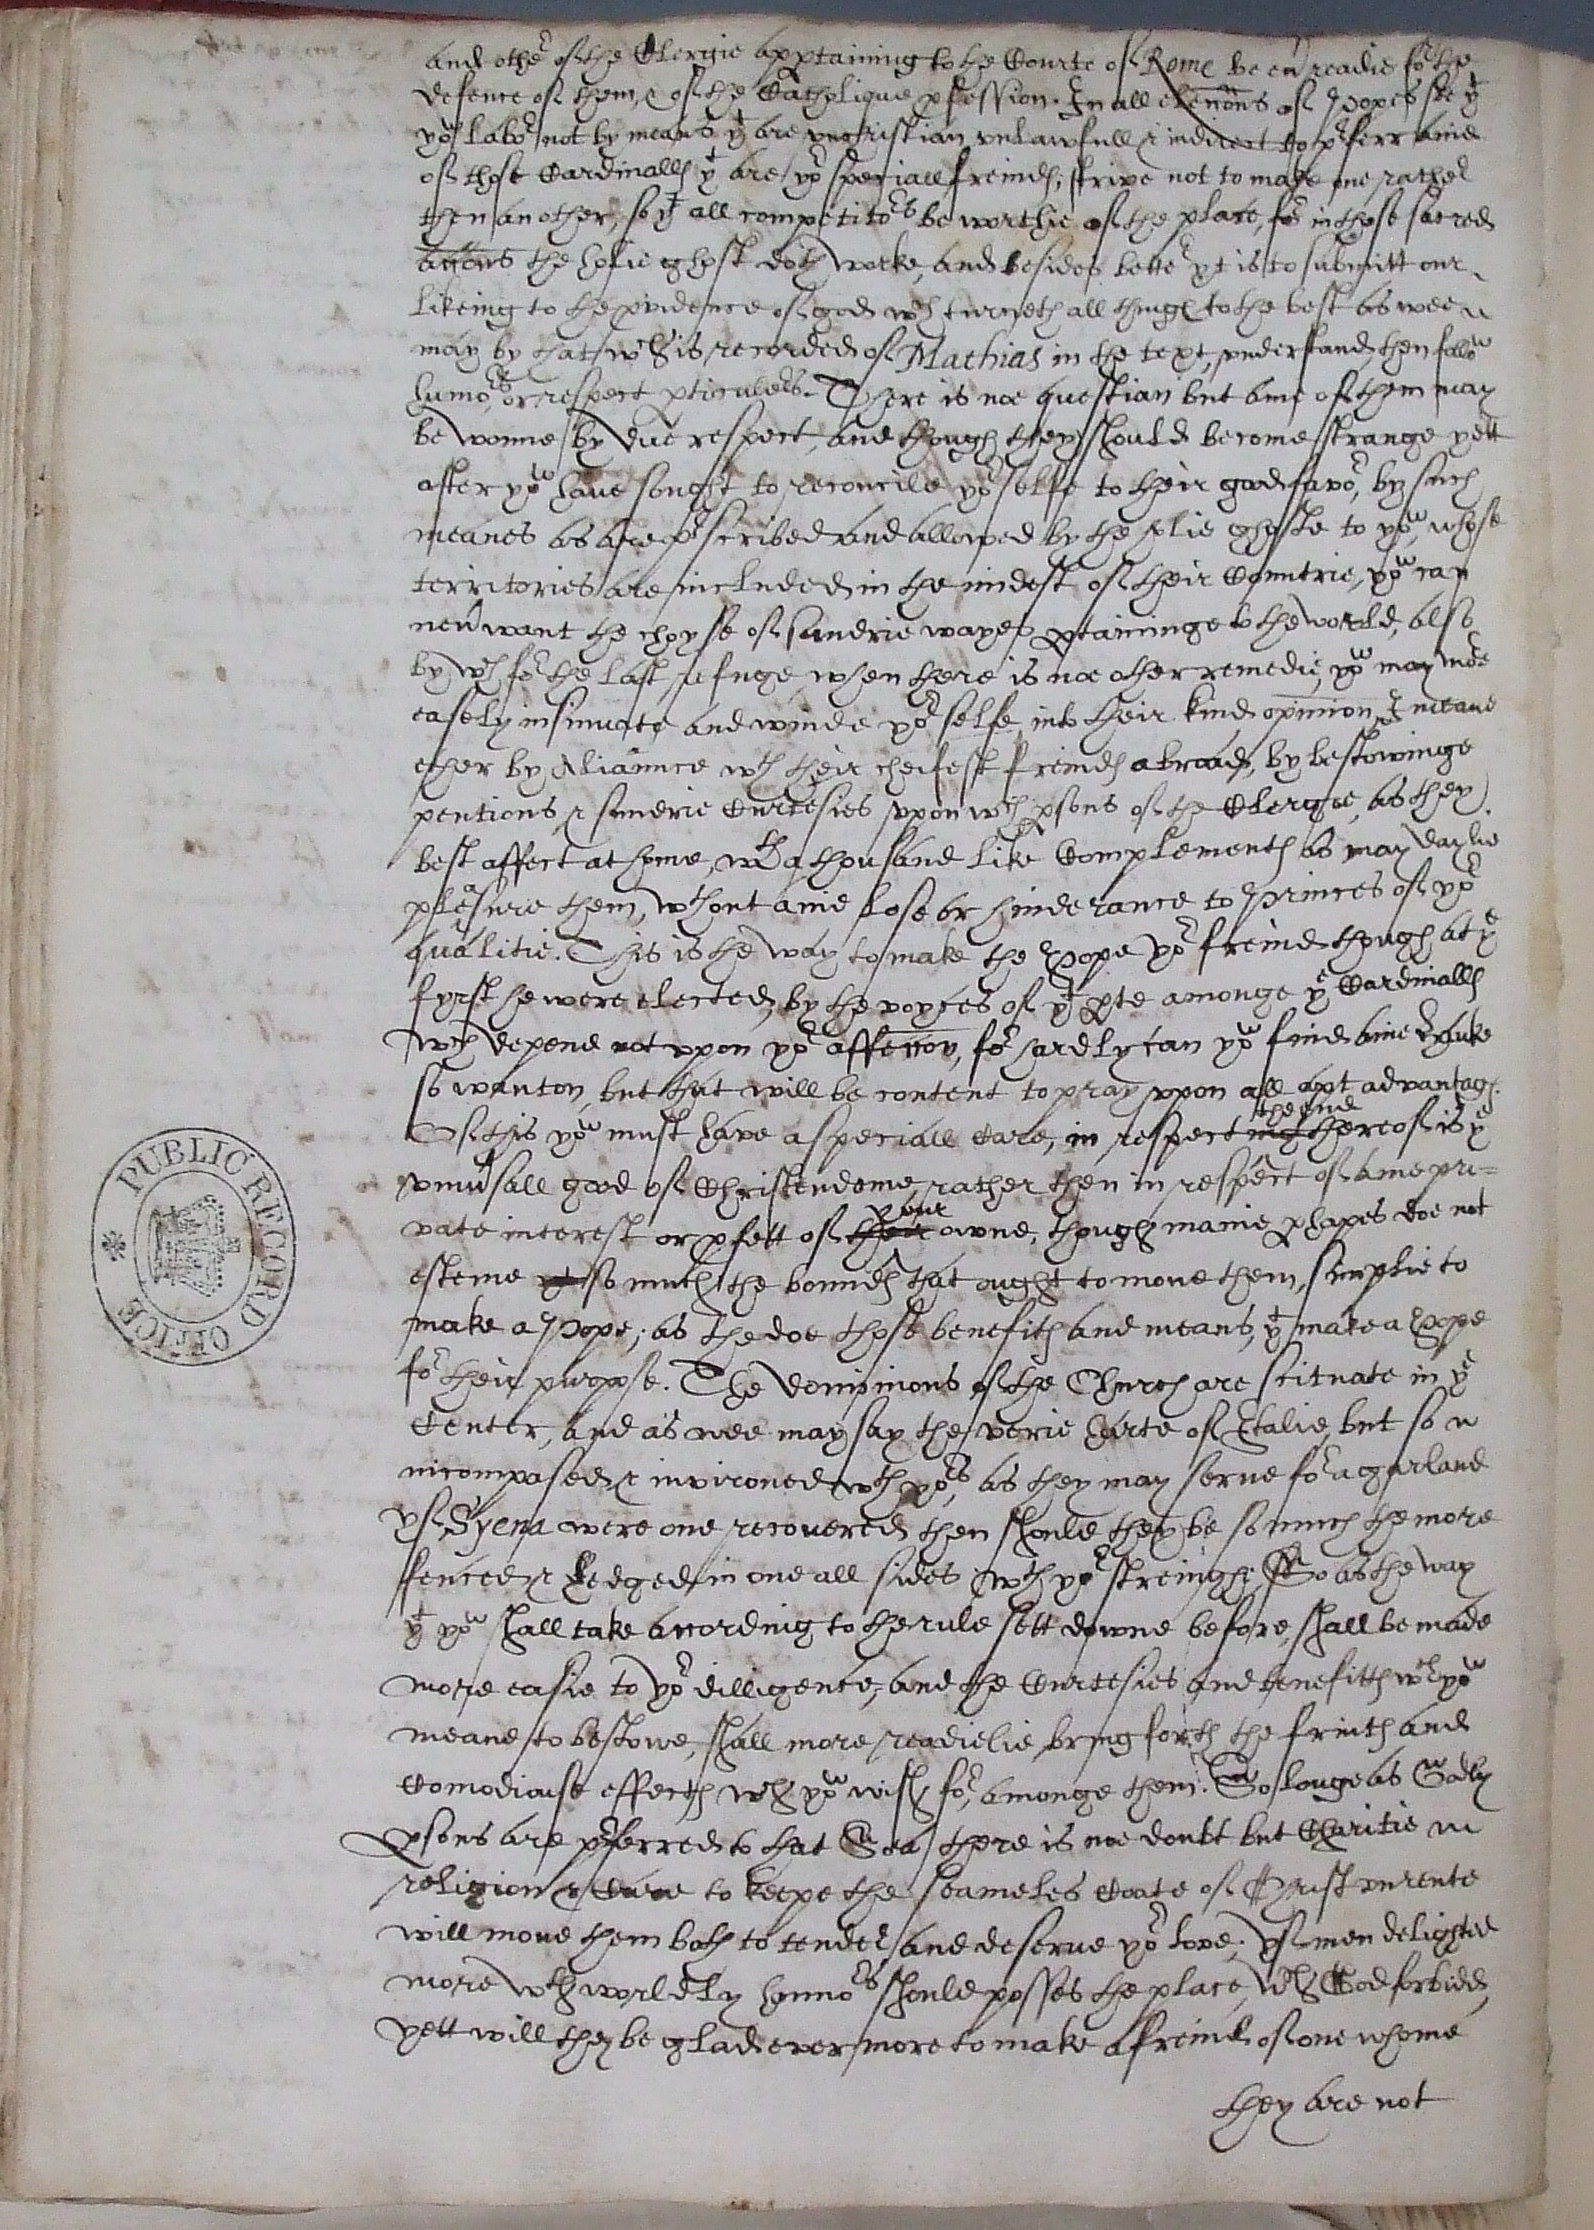 and othr of the Clergie apptaining to the Courte of Rome be eur readie for the
defence of them, & of the Catholique pfession. In all elections of Popes see yt
yor labor not by means yt are unchristian unlawfull & indirect to prferr anie
of those Cardinalls yt are yor speciall freinds, strive not to make one rather
then an other, so yt all competitors be worthie of the place, for in those sacred
actions the holie ghost doth worke, and besides bettr yt is to submitt our
likeing to the pvidence of god wch turneth all things to the best as wee
may by that wch is recorded of Mathias in the text, understand, then follow
humors, or respect pticulers. There is noe question but anie of them may
be wonne by due respect, and though they should become strange yett
after yow have sought to reconcile yor selfe to their good favor, by such
meanes as are prscribed and allowed by the holie ghoste to yow, whose
territories are included in the midest of their Countrie, yow can
neur want the choyse of sundrie wayes ptaininge to the world, also
by wch for the last refuge when there is noe other remedie, yow may more
easely insinuate and winde yor selfe into their kind opinion, I meane
ether by Aliannce wth their cheifest freinds abroad, by bestowinge
pentions & sundrie Curtesies uppon wch psons of the Clergie, as they
best affect at home, wth a thousand like Complements as may daylie
pleasure them, wthout anie lose or hinderance to Princes of yor
qualitie. This is the way to make the Pope yor freind though at ye
fyrst he were elected by the voyces of yt pte amonge ye Cardinalls
wch depend not uppon yor affection, for hardly can yow find anie hauke
so wanton, but that will be content to pray uppon all apt advantags.
Of this yow must have a speciall Care, in respect the end thereof is ye
uniursall good of Christendome, rather then in respect of anie pri=
vate interest or pfett of their your owne, though manie phapes doe not
esteme yt so much the bounds that ought to move them, simplie to
make a Pope; as the doe those benefiths and means, yt make a Pope
for their purpose. The dominions of the Church are scituate in ye
Center, and as wee may say the verie harte of Italie, but so
incompased & invironed wth yors, as they may serve for a garland
yf Syena were one recovered then should they be so much the more
fenced & hedged in one all sides wth yor streingh. So as the way
yt yow shall take according to the rule sett downe before, shall be made
more easie to yor dilligence, and the Curtesies and benefitth wch yow
meane to bestowe, shall more readielie bring forth the fruith and
Comodiouse effects wch yow wish for, amonge them. So longe as Godly
Psons are prferred to that Sea, there is noe doubt but Charitie in
religion & Care to keepe the seameles Coate of Christ unrente
will move them both to tender and deserve yor love; yf men delighted
more wth worldly honnors should posses the place, wch God forbidd,
yett will they be glad ever more to make a freind of one whome
they are not
PUBLIC RECORD OFFICE